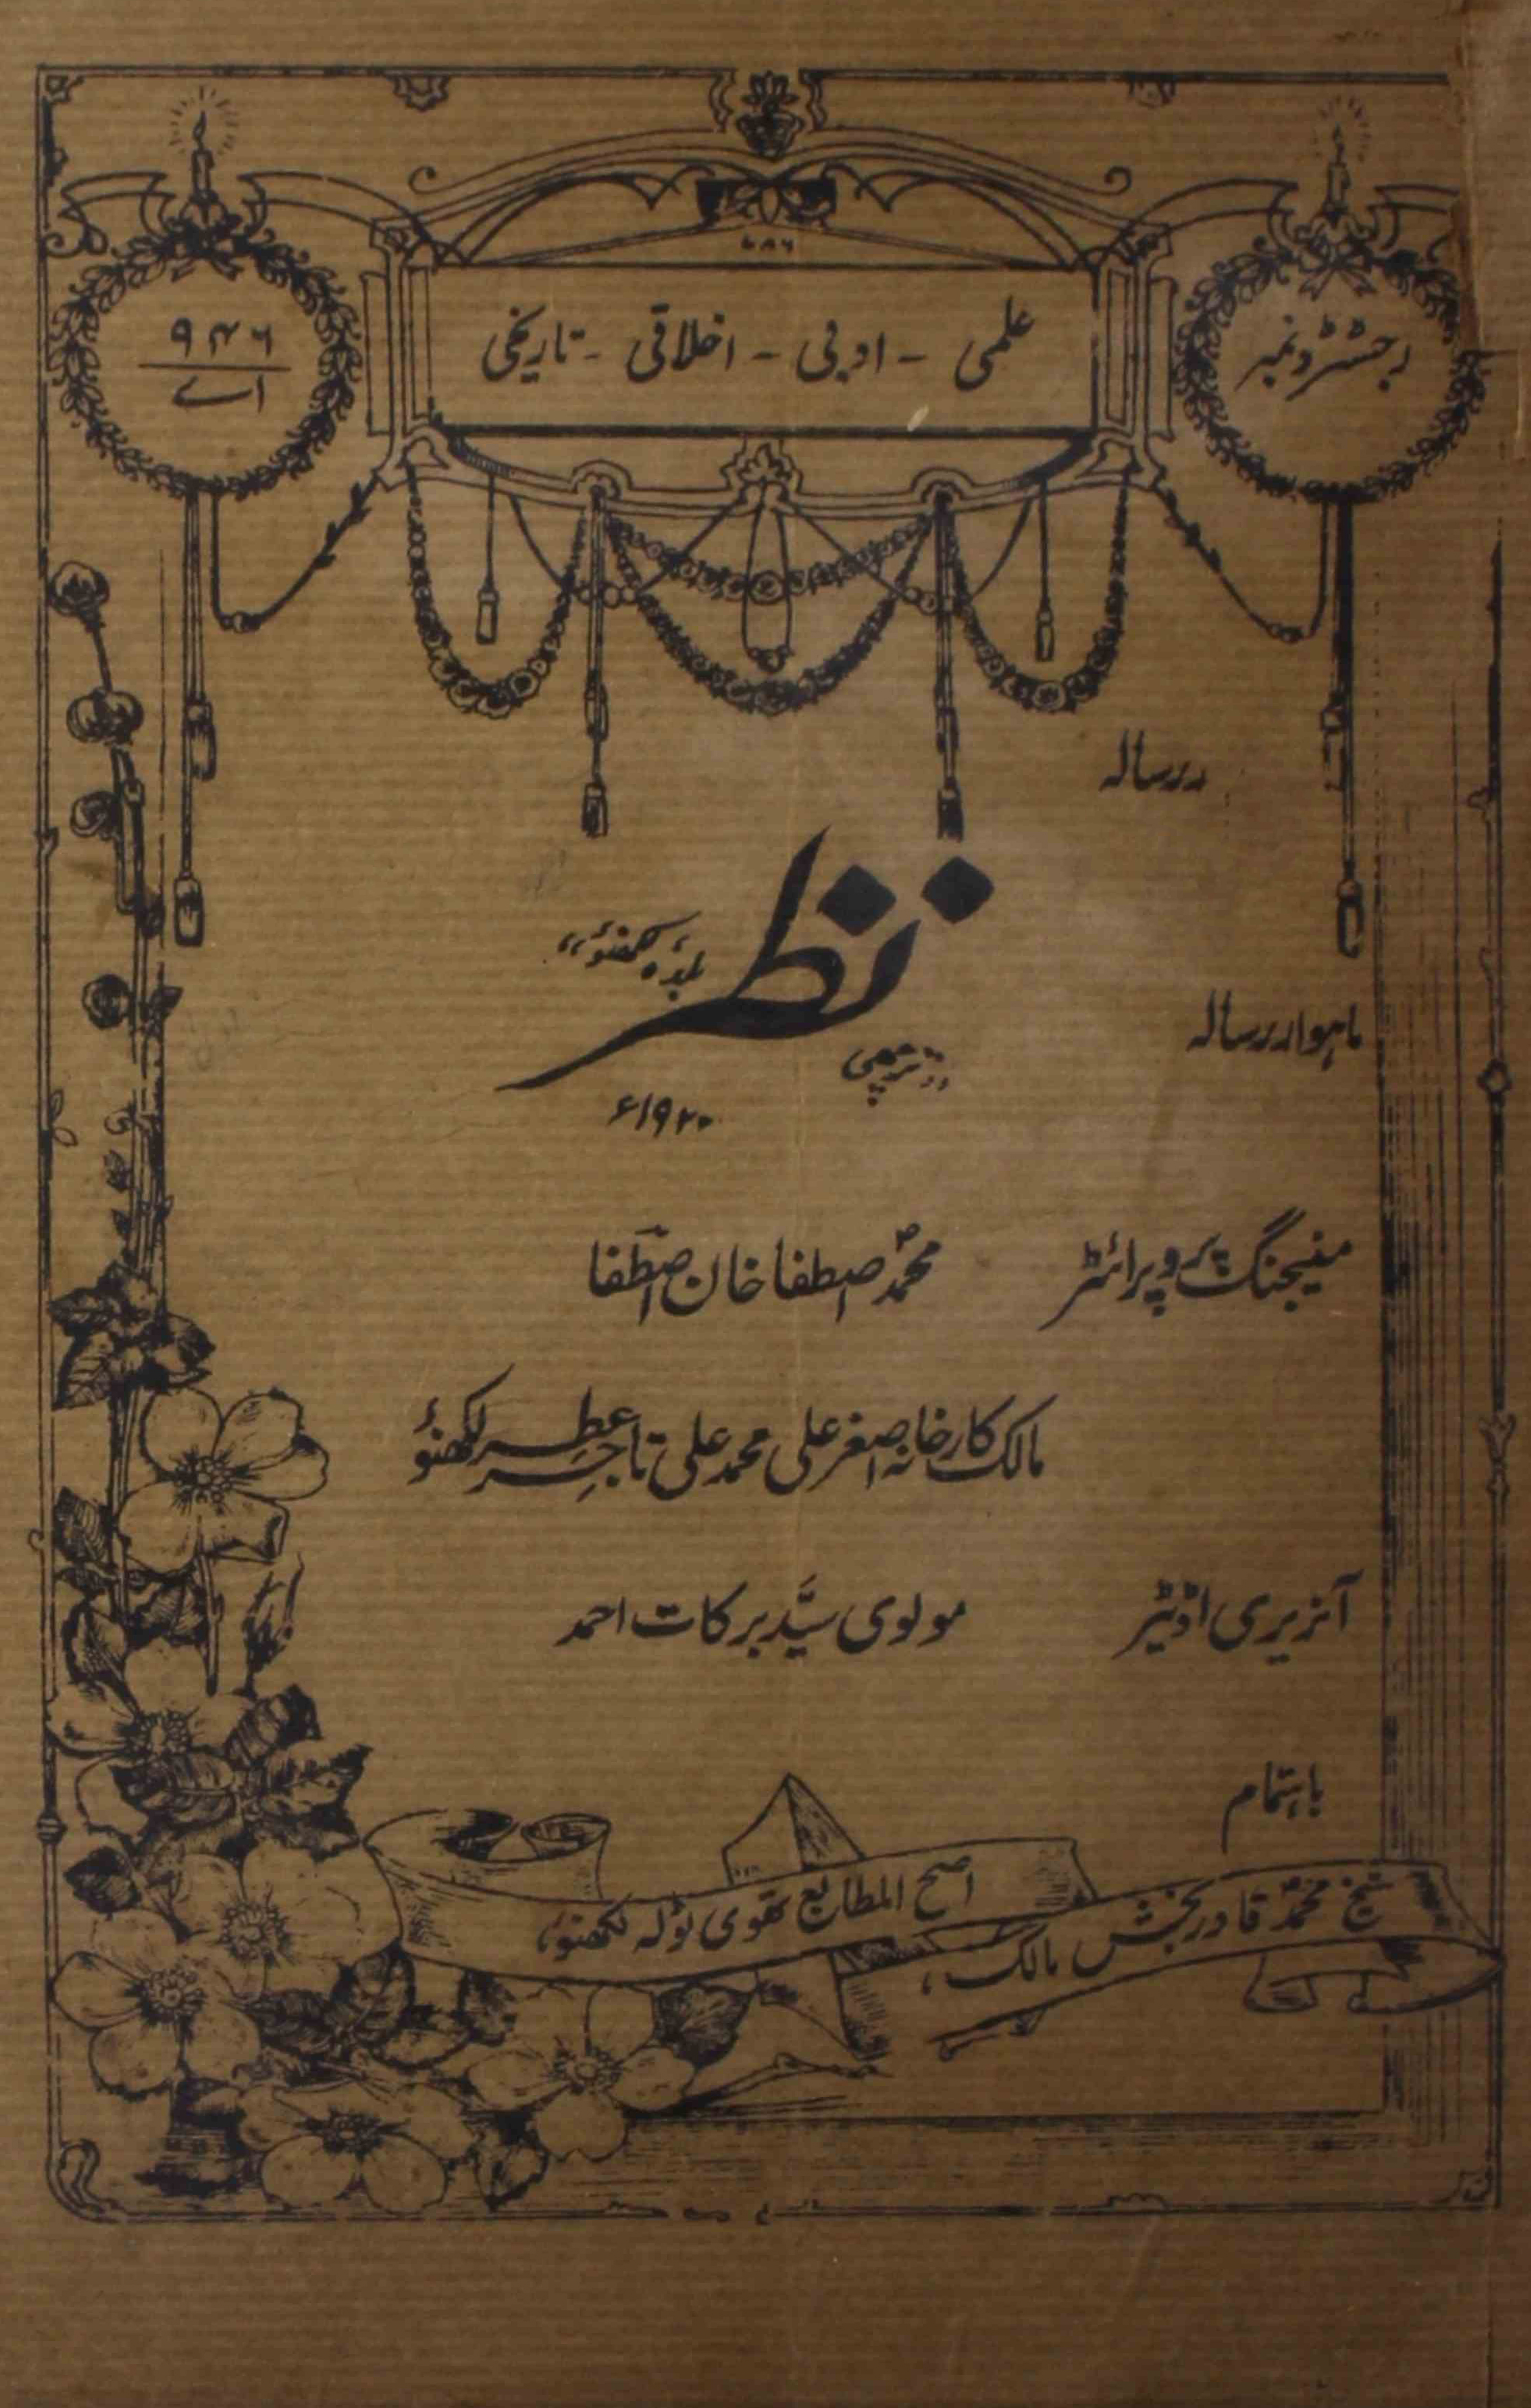 ۷۸۶
رجسٹرڈ نمبر
علمی - ادبی - اخلاقی - تاریخی
۹۴۶
اے
رسالہ
نظر
بلدۂ لکھنؤ
ماہوار رسالہ
۱۹۲۰ء
منیجنگ پروپرائٹر محمد اصطفا خان اصطفا
مالک کارخانہ اصغر علی محمد علی تاجر عطر لکھنؤ
آنریری اڈیٹر مولوی سیّد برکات احمد
باہتمام
شیخ محمد قادر بخش مالک،
اصح المطابع نقوی ٹولہ لکھنؤ،